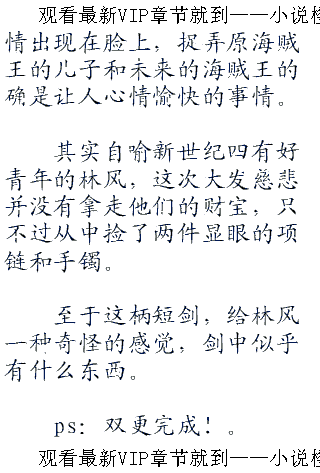 观看最新VIP章节就到——小说检
情出现在脸上，捉弄原海贼
王的儿子和未来的海贼王的
确是让人心情愉快的事情。
其实自喻新世纪四有好
青年的林风，这次大发慈悲
并没有拿走他们的财宝，只
不过从中捡了两件显眼的项
链和手镯。
至于这柄短剑，给林风
一种奇怪的感觉，剑中似乎
有什么东西。
ps：双更完成！。
观看最新VIP章节就到——小说检